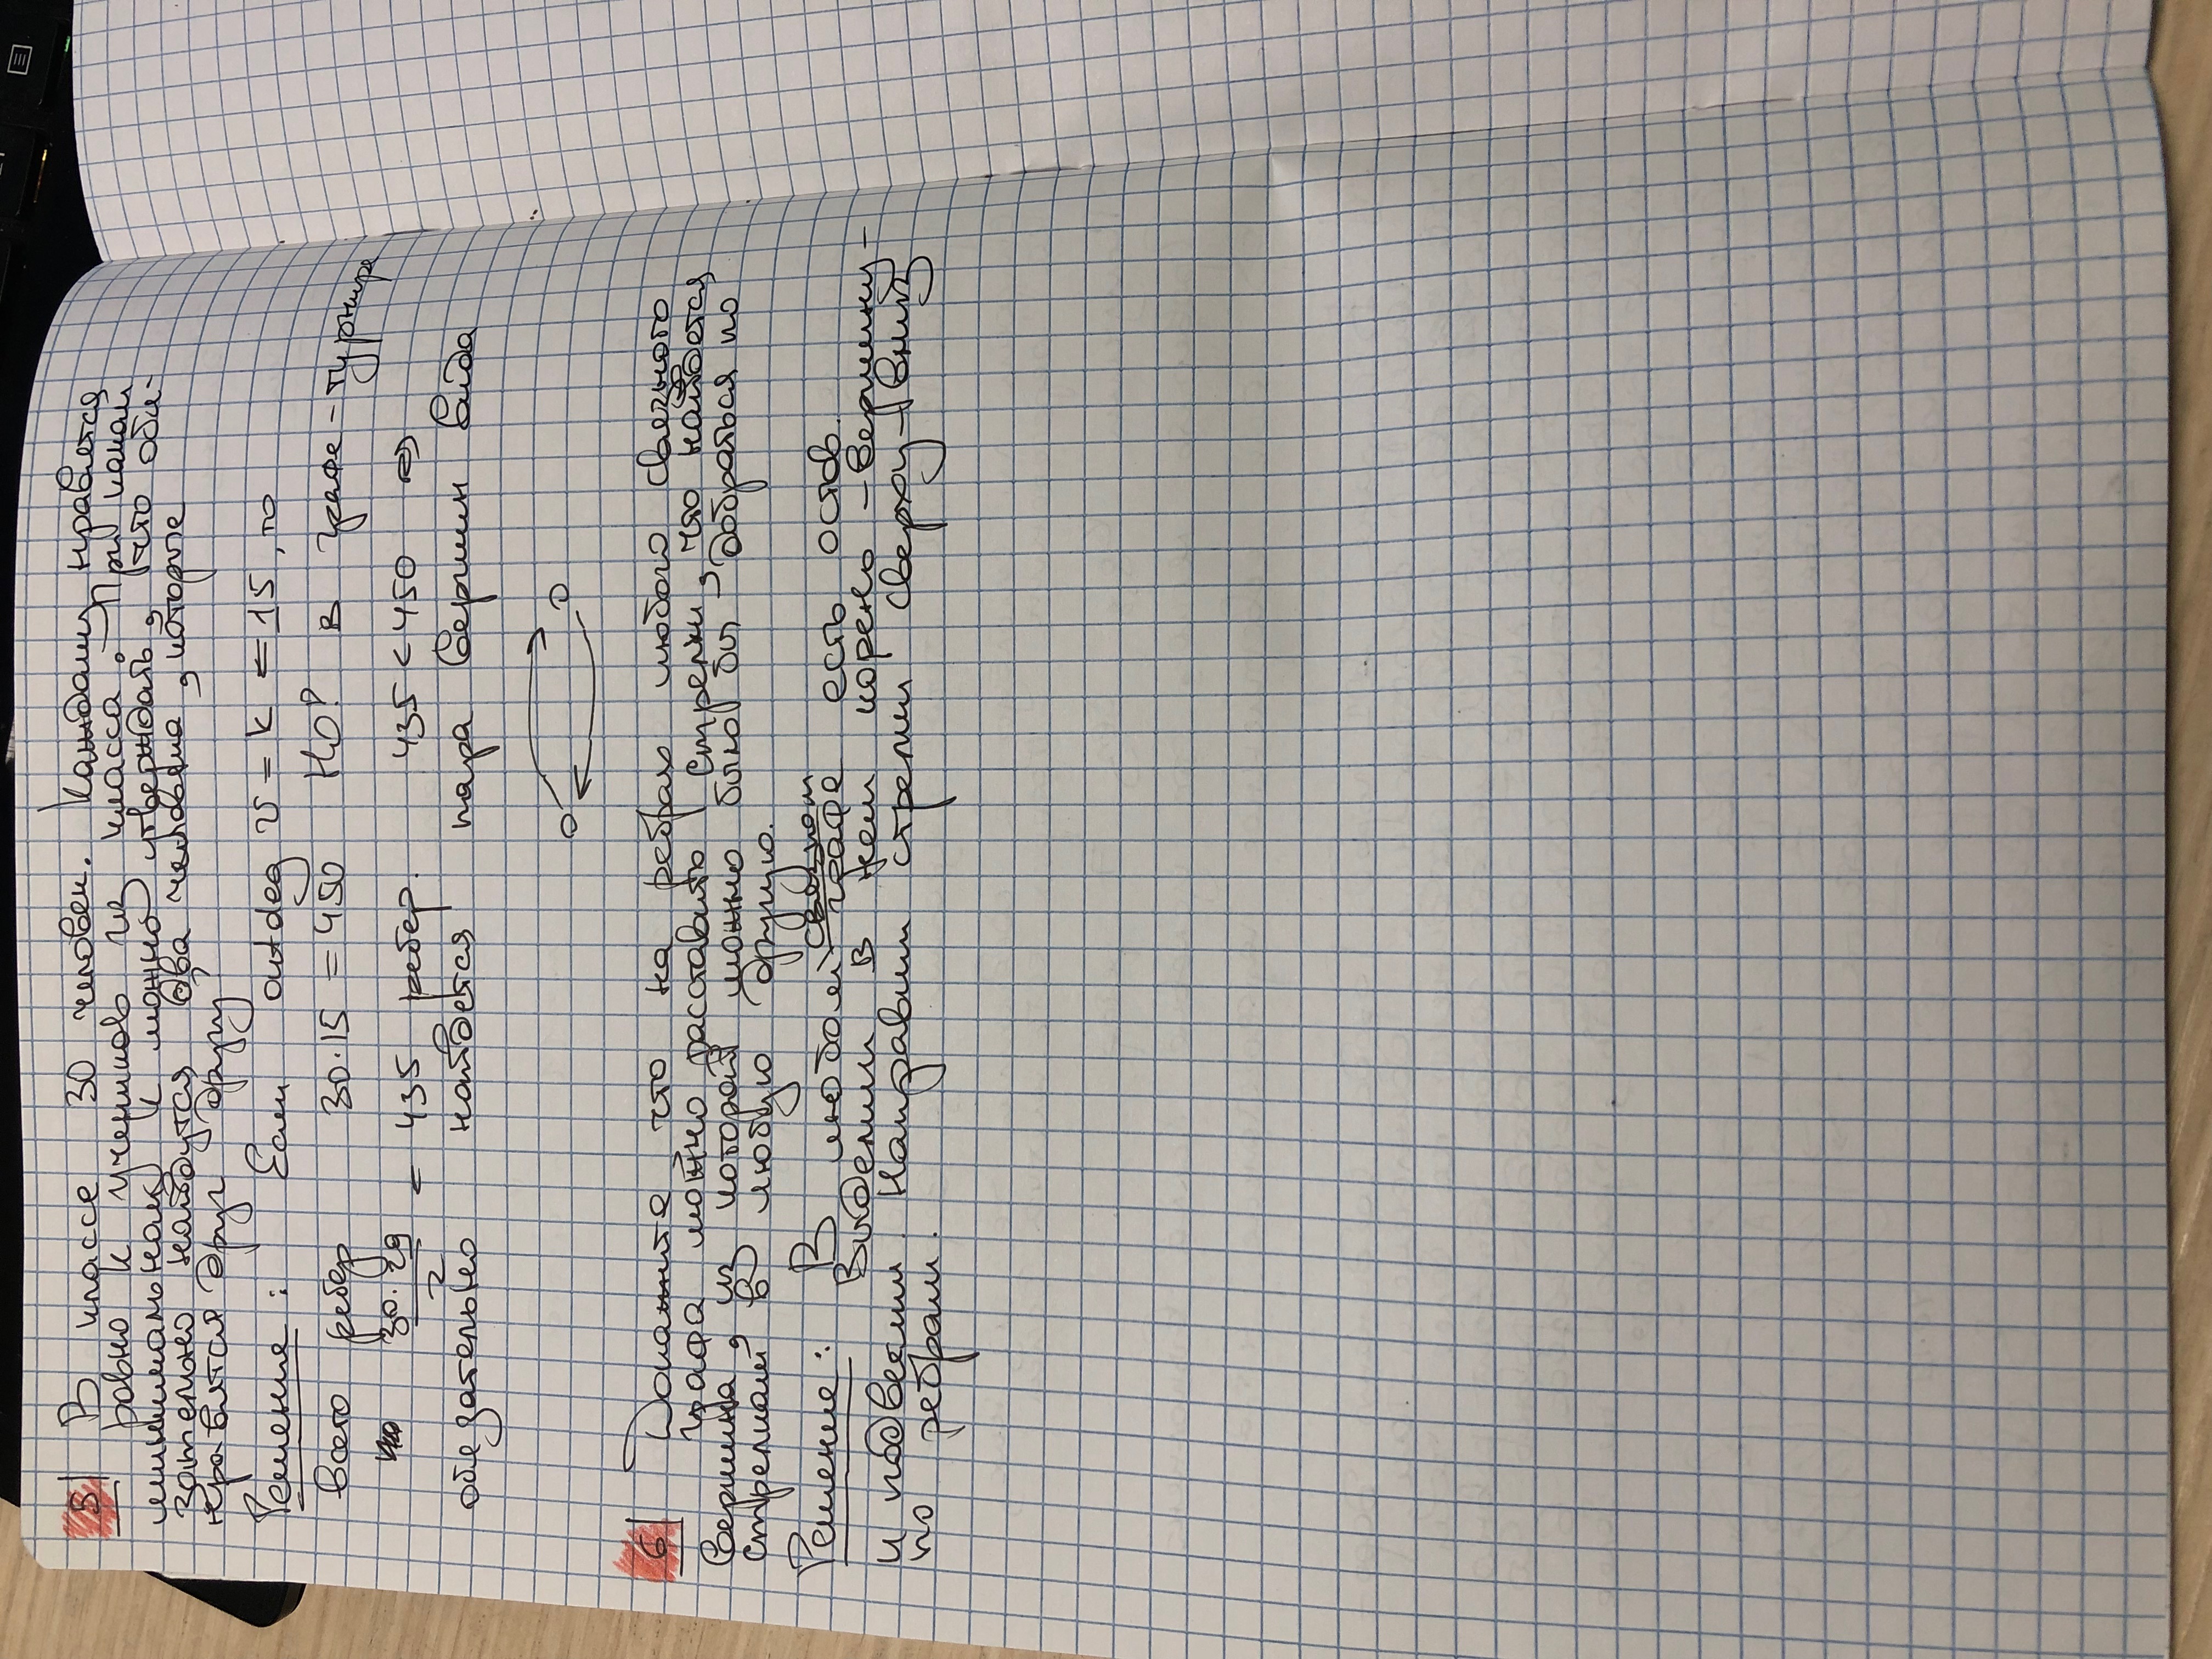 5 В классе 30 человек. Каждому нравятся
ровно к учеников из класса. При каком
минимальном к можно утверждать, что обя-
зательно найдутся два человека, которые
нравятся друг другу?
Решение: Если outdeg v = k = 15, то
всего ребер 30·15 = 450 Но! в графе-турнире
30·29/2 = 435 ребер. 435 < 450 ⇒
обязательно найдется пара вершин вида
6 Докажите что на ребрах любого связного
графа можно расставить стрелки, что найдется
вершина, из которой можно было бы добраться по
стрелкам в любую другую.
Решение: В любом связном графе есть остов.
Выделим в нем корень - вершину -
и подвесим. Направим стрелки сверху-вниз
по ребрам.